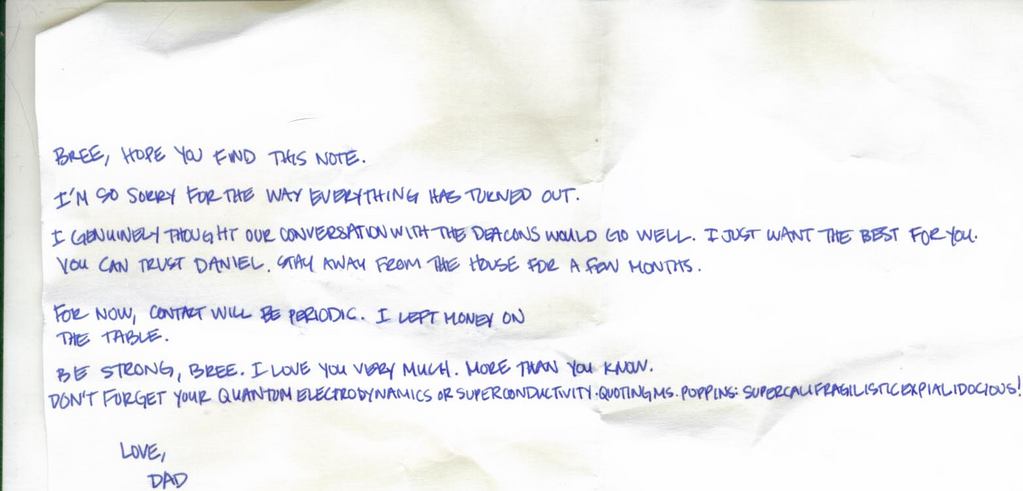 BREE, HOPE YOU FIND THIS NOTE.
I'M SO SORRY FOR THE WAY EVERYTHING HAS TURNED OUT.
I GENUINELY THOUGHT OUR CONVERSATION WITH THE DEACONS WOULD GO WELL. I JUST WANT THE BEST FOR YOU.
YOU CAN TRUST DANIEL. STAY AWAY FROM THE HOUSE FOR A FEW MONTHS.
FOR NOW, CONTACT WILL BE PERIODIC. I LEFT MONEY ON
THE TABLE.
BE STRONG, BREE. I LOVE YOU VERY MUCH. MORE THAN YOU KNOW.
DON'T FORGET YOUR QUANTUM ELECTRODYNAMICS OR SUPERCONDUCTIVITY. QUOTING MS. POPPINS: SUPERCALIFRAGILISTICEXPIALIDOCIOUS!
LOVE,
DAD